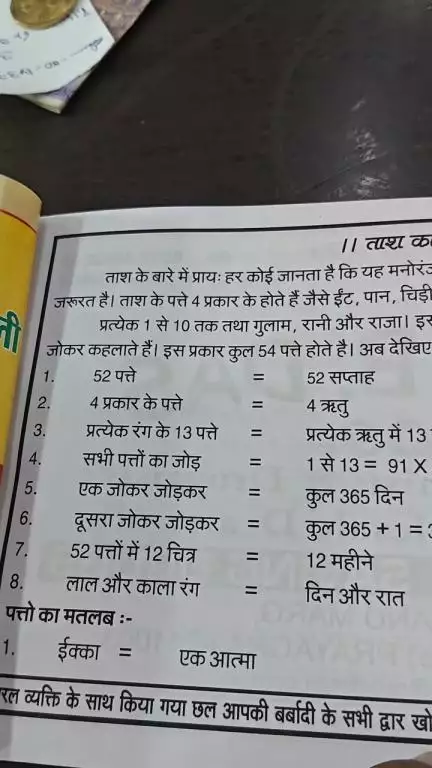 // ताश
ताश के बारे में प्रायः हर कोई जानता है कि यह
जरूरत है। ताश के पत्ते 4 प्रकार के होते हैं जैसे ईंट, पान,
प्रत्येक 1 से 10 तक तथा गुलाम, रानी और राजा।
जोकर कहलाते हैं। इस प्रकार कुल 54 पत्ते होते है। अब देखिए
1. 52 पत्ते = 52 सप्ताह
2. 4 प्रकार के पत्ते = 4 ऋतु
3. प्रत्येक रंग के 13 पत्ते = प्रत्येक ऋतु में 13
4. सभी पत्तों का जोड़ = 1 से 13 = 91 X
5. एक जोकर जोड़कर = कुल 365 दिन
6. दूसरा जोकर जोड़कर = कुल 365 + 1 =
7. 52 पत्तों में 12 चित्र = 12 महीने
8. लाल और काला रंग = दिन और रात
पत्तो का मतलब :-
1. ईक्का = एक आत्मा
व्यक्ति के साथ किया गया छल आपकी बर्बादी के सभी द्वार